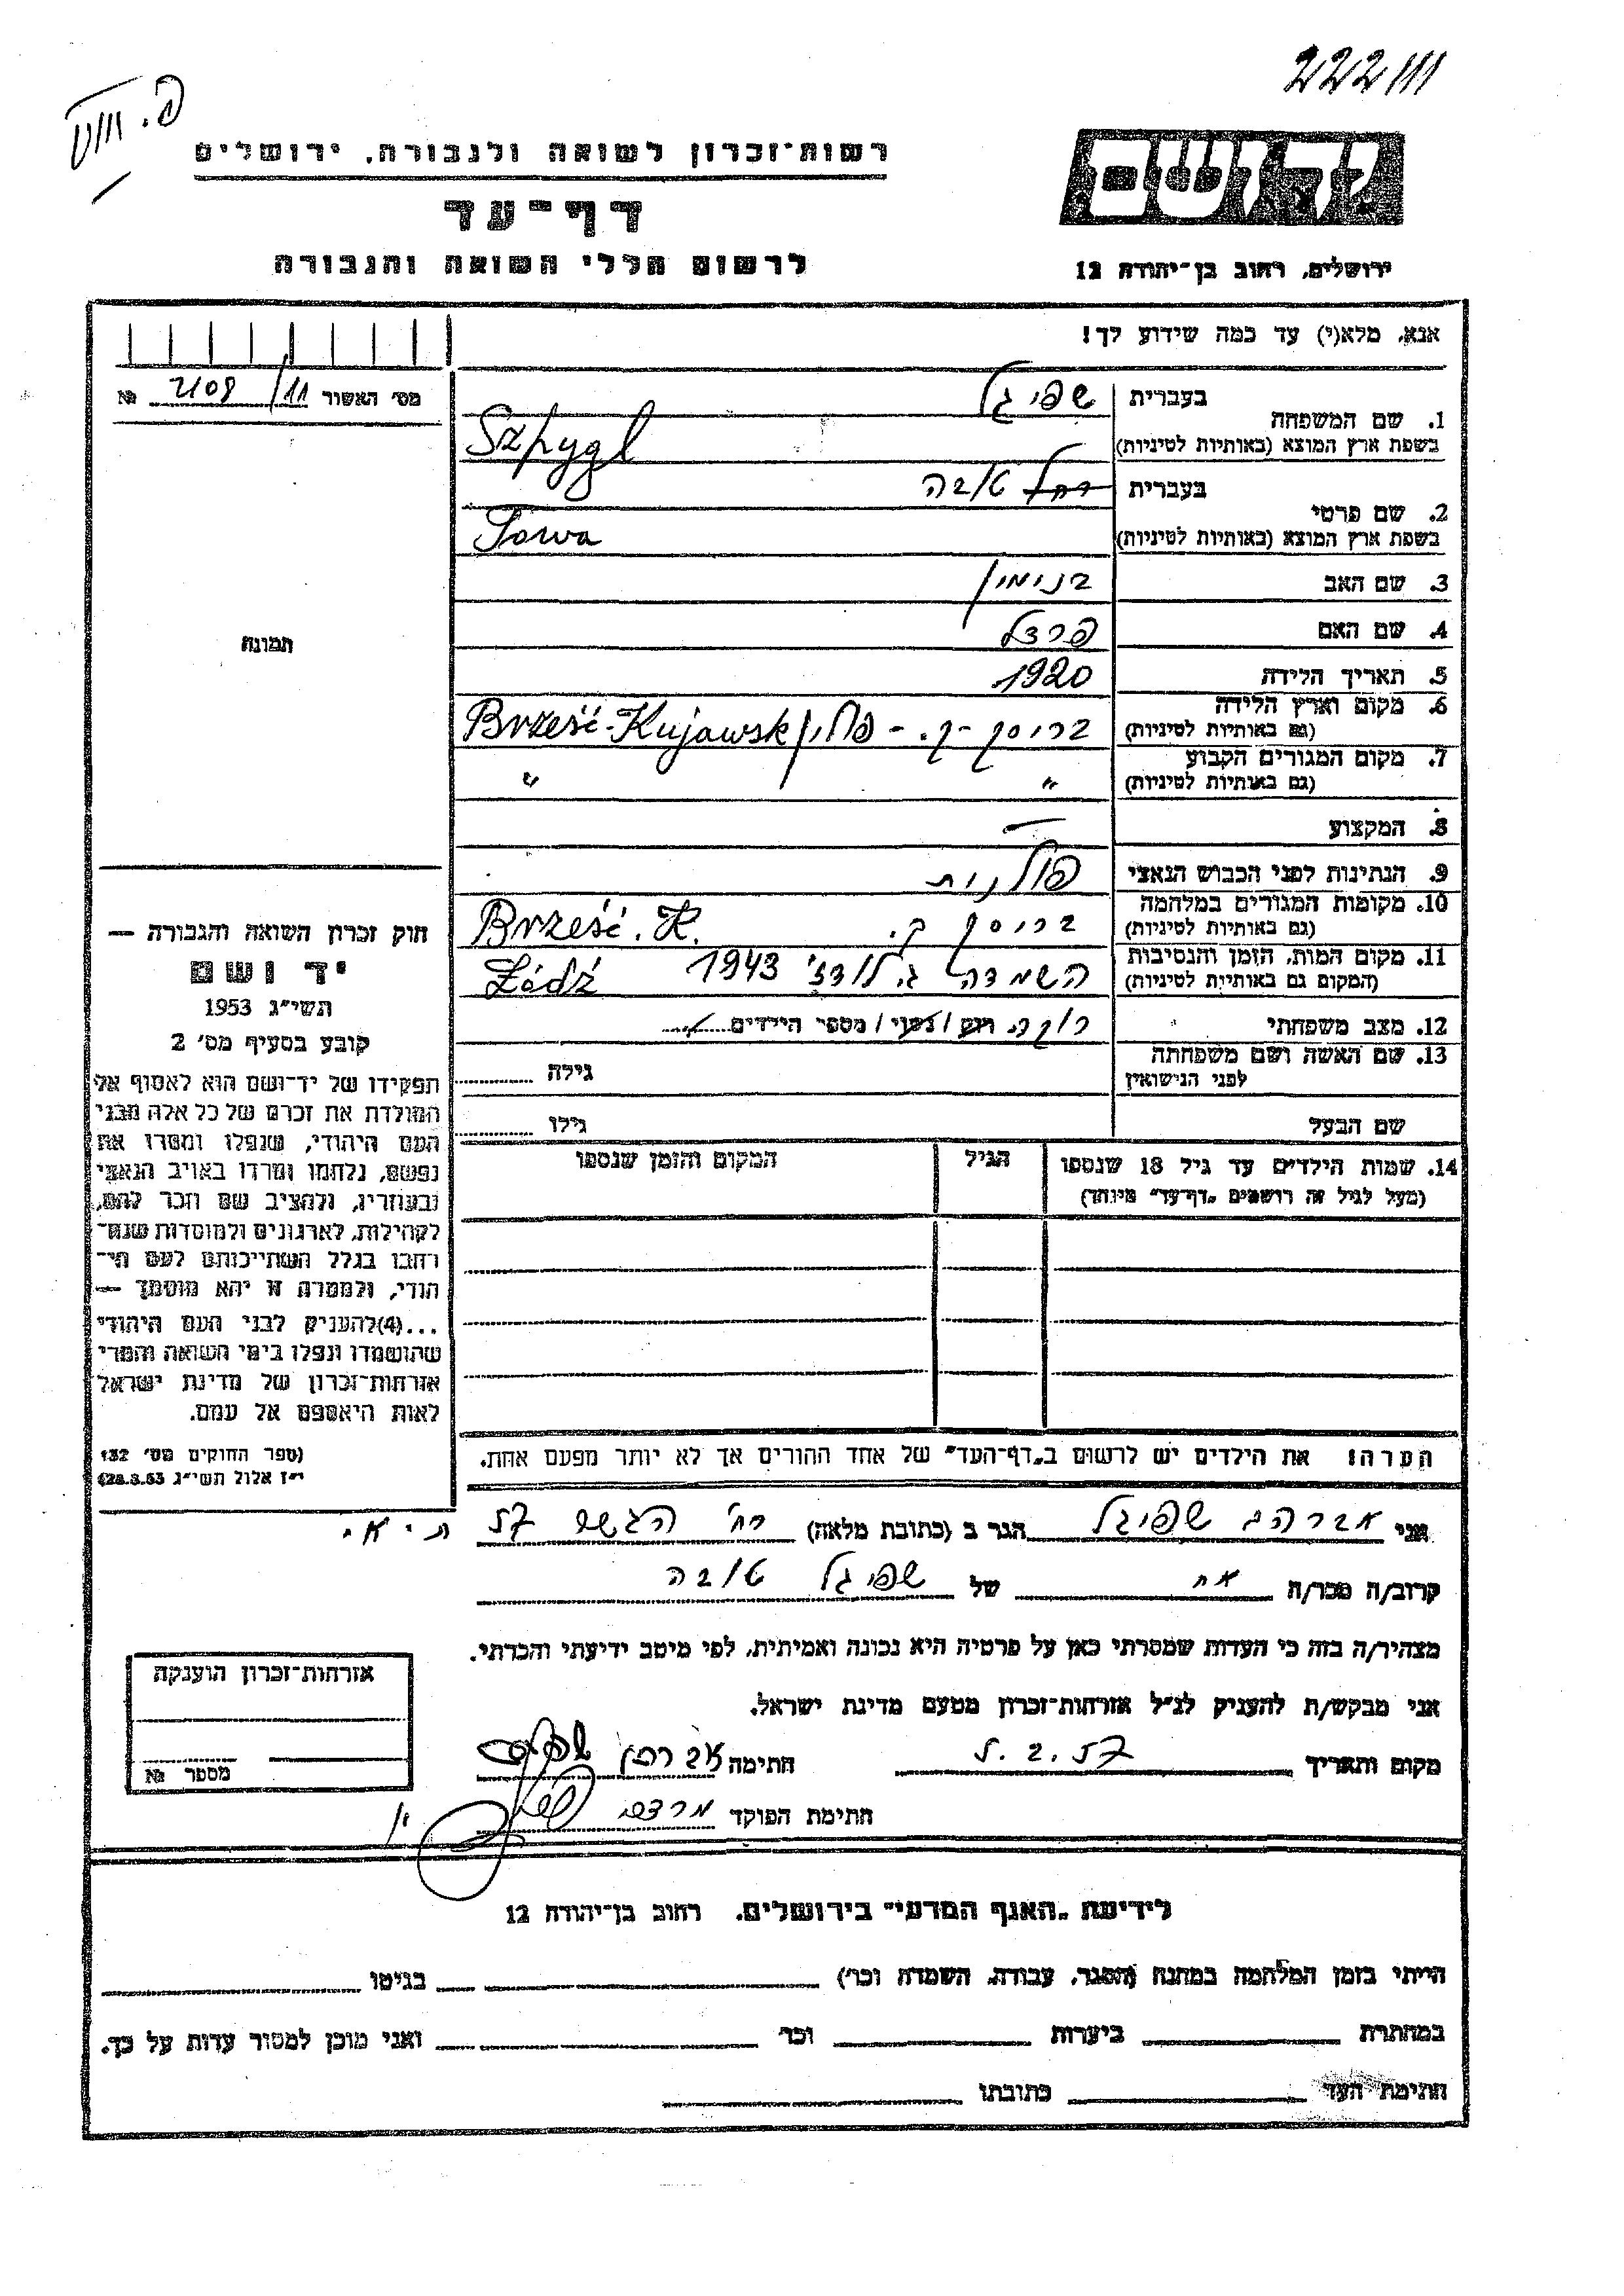 222111
רשות־זכרון לשואה ולגבורה, ירושלים
יד ושם
דף־עד
לרשום חללי השואה והגבורה
ירושלים, רחוב בן־יהודה 12
אנא, מלא(י) עד כמה שידוע לך!
מס׳ האשור 11/ 2108 №
תמונה
1. שם המשפחה
בעברית שפיגל
בשפת ארץ המוצא (באותיות לטיניות) Szpygl
2. שם פרטי
בעברית רחל טובה
בשפת ארץ המוצא (באותיות לטיניות) Towa
3. שם האב בנימין
4. שם האם פרצל
5. תאריך הלידה 1920
6. מקום וארץ הלידה
(גם באותיות לטיניות) בריסק -ק. - פולין Brześć-Kujawsk
7. מקום המגורים הקבוע
(גם באותיות לטיניות) " "
8. המקצוע —
9. הנתינות לפני הכבוש הנאצי פולנית
10. מקומות המגורים במלחמה
(גם באותיות לטיניות) בריסק ק. Brześć. K.
11. מקום המות, הזמן והנסיבות
(המקום גם באותיות לטיניות) השמדה ג. לודז׳ 1943 Łódź
12. מצב משפחתי רוקה רווק/נשוי/מספר הילדים
13. שם האשה ושם משפחתה
לפני הנישואין גילה
שם הבעל גילו
14. שמות הילדים עד גיל 18 שנספו
(מעל לגיל זה רושמים „דף־עד" מיוחד)
הגיל
המקום והזמן שנספו
הערה: את הילדים יש לרשום ב„דף־העד" של אחד ההורים אך לא יותר מפעם אחת.
חוק זכרון השואה והגבורה —
יד ושם
תשי״ג 1953
קובע בסעיף מס׳ 2
תפקידו של יד־ושם הוא לאסוף אל
המולדת את זכרם של כל אלה מבני
העם היהודי, שנפלו ומסרו את
נפשם, נלחמו ומרדו באויב הנאצי
ובעוזריו, ולהציב שם וזכר להם,
לקהילות, לארגונים ולמוסדות שנח־
רבו בגלל השתייכותם לעם הי־
הודי, ולמטרה זו יהא מוסמך —
...(4) להעניק לבני העם היהודי
שהושמדו ונפלו בימי השואה והמרי
אזרחות־זכרון של מדינת ישראל
לאות היאספם אל עמם.
(ספר החוקים מס׳ 132
י״ז אלול תשי״ג 28.8.53)
אני אברהם שפיגל הגר ב (כתובת מלאה) רח׳ הגשר 57 ת״א
קרוב/ה מכר/ה אח של שפיגל טובה
מצהיר/ה בזה כי העדות שמסרתי כאן על פרטיה היא נכונה ואמיתית, לפי מיטב ידיעתי והכרתי.
אני מבקש/ת להעניק לנ״ל אזרחות־זכרון מטעם מדינת ישראל.
מקום ותאריך 5.2.57 חתימה
חתימת הפוקד
אזרחות־זכרון הוענקה
מספר №
לידיעת „האגף המדעי" בירושלים, רחוב בן־יהודה 12
הייתי בזמן המלחמה במחנה (הסגר, עבודה, השמדה וכו׳) בגיטו
במחתרת ביערות וכו׳ ואני מוכן למסור עדות על כך.
חתימת העד כתובתו